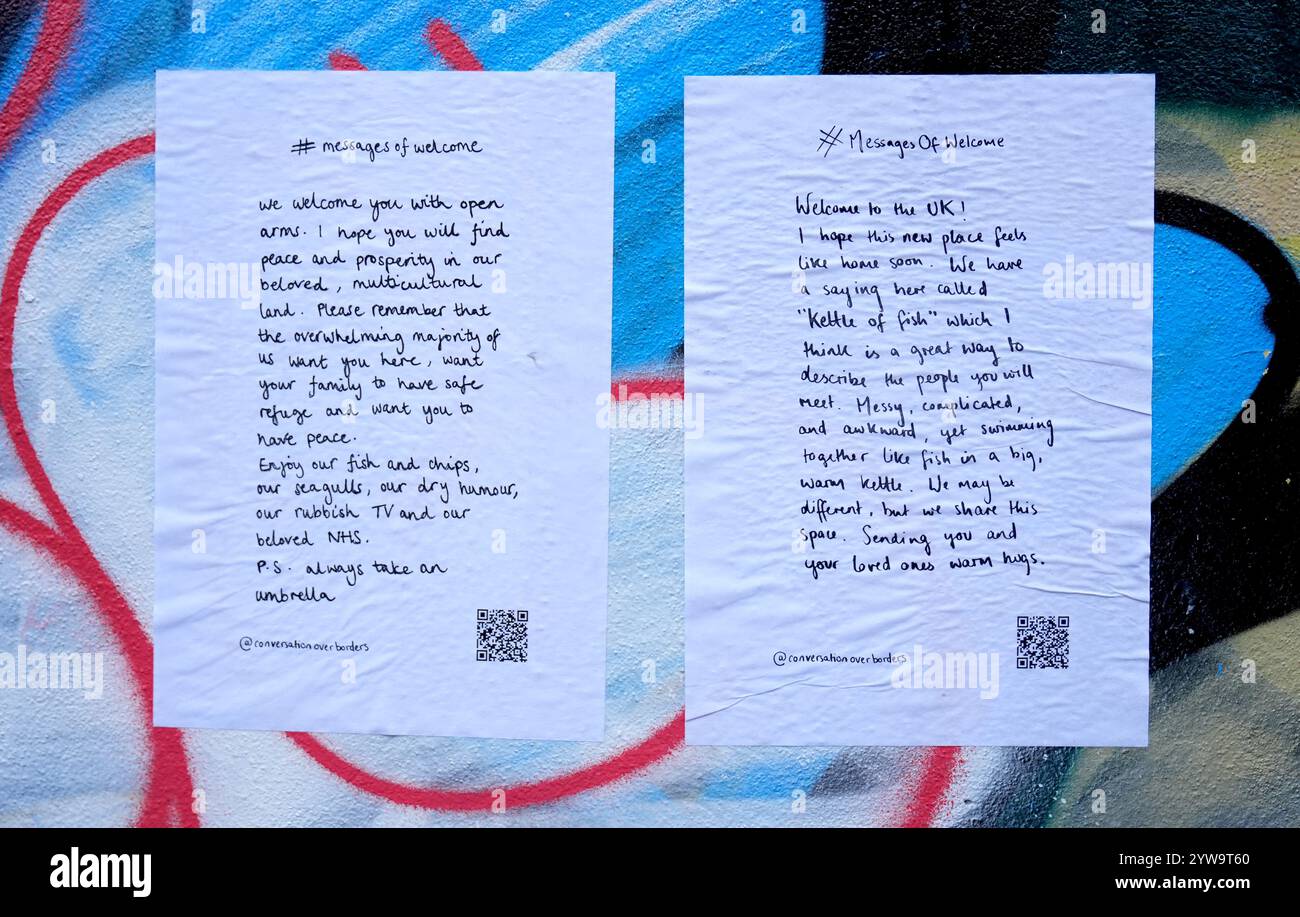 # messages of welcome
we welcome you with open
arms. I hope you will find
peace and prosperity in our
beloved, multicultural
land. Please remember that
the overwhelming majority of
us want you here, want
your family to have safe
refuge and want you to
have peace.
Enjoy our fish and chips,
our seagulls, our dry humour,
our rubbish TV and our
beloved NHS.
P.S. always take an
umbrella
@conversationoverborders
# Messages Of Welcome
Welcome to the UK!
I hope this new place feels
like home soon. We have
a saying here called
"Kettle of fish" which I
think is a great way to
describe the people you will
meet. Messy, complicated,
and awkward, yet swimming
together like fish in a big,
warm kettle. We may be
different, but we share this
space. Sending you and
your loved ones warm hugs.
@conversationoverborders
alamy
Image ID: 2YW9T60
www.alamy.com